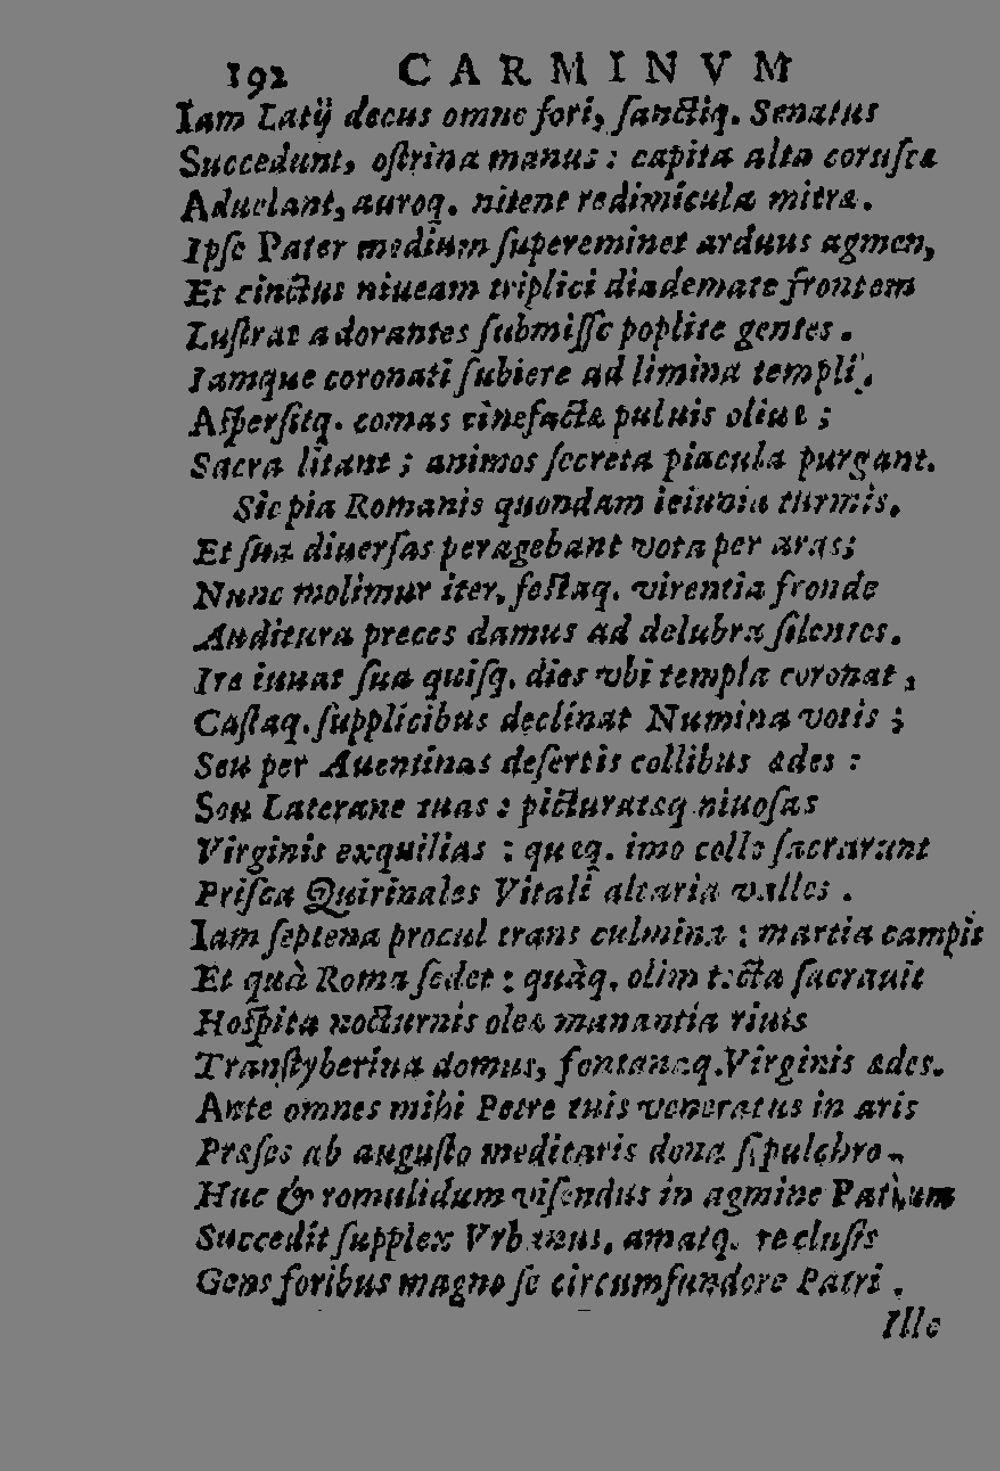 192 CARMINVM
Iam Latij decus omne fori, ſanctiq. Senatus
Succedunt, oſtrina manus: capita alta coruſca
Aduelant, auroq. nitent redimicula mitra.
Ipſe Pater medium ſupereminet arduus agmen,
Et cinctus niueam triplici diademate frontem
Luſtrat adorantes ſubmiſſe poplite gentes.
Iamque coronati ſubiere ad limina templi,
Aſperſitq. comas cinefactæ puluis oliuæ;
Sacra litant; animos ſecreta piacula purgant.
Sic pia Romanis quondam ieiunia turmis,
Et ſua diuerſas peragebant vota per aras;
Nunc molimur iter, feſtaq. virentia fronde
Auditura preces damus ad delubra ſilentes.
Ita iuuat ſua quiſq. dies vbi templa coronat,
Caſtaq. ſupplicibus declinat Numina votis;
Seu per Auentinas deſertis collibus ædes:
Seu Laterane tuas: picturatasq niuoſas
Virginis exquilias: quæq. imo colle ſacrarunt
Priſca Quirinales Vitali altaria valles.
Iam ſeptena procul trans culmina: martia campis
Et quà Roma ſedet: quàq. olim tecta ſacrauit
Hoſpita nocturnis olea manantia riuis
Tranſtyberina domus, fontanæq. Virginis ædes.
Ante omnes mihi Petre tuis veneratus in aris
Præſes ab auguſto meditaris dona ſepulchro.
Huc & romulidum viſendus in agmine Patrum
Succedit ſupplex Vrbanus, amatq. recluſis
Gens foribus magno ſe circumfundere Patri.
Ille